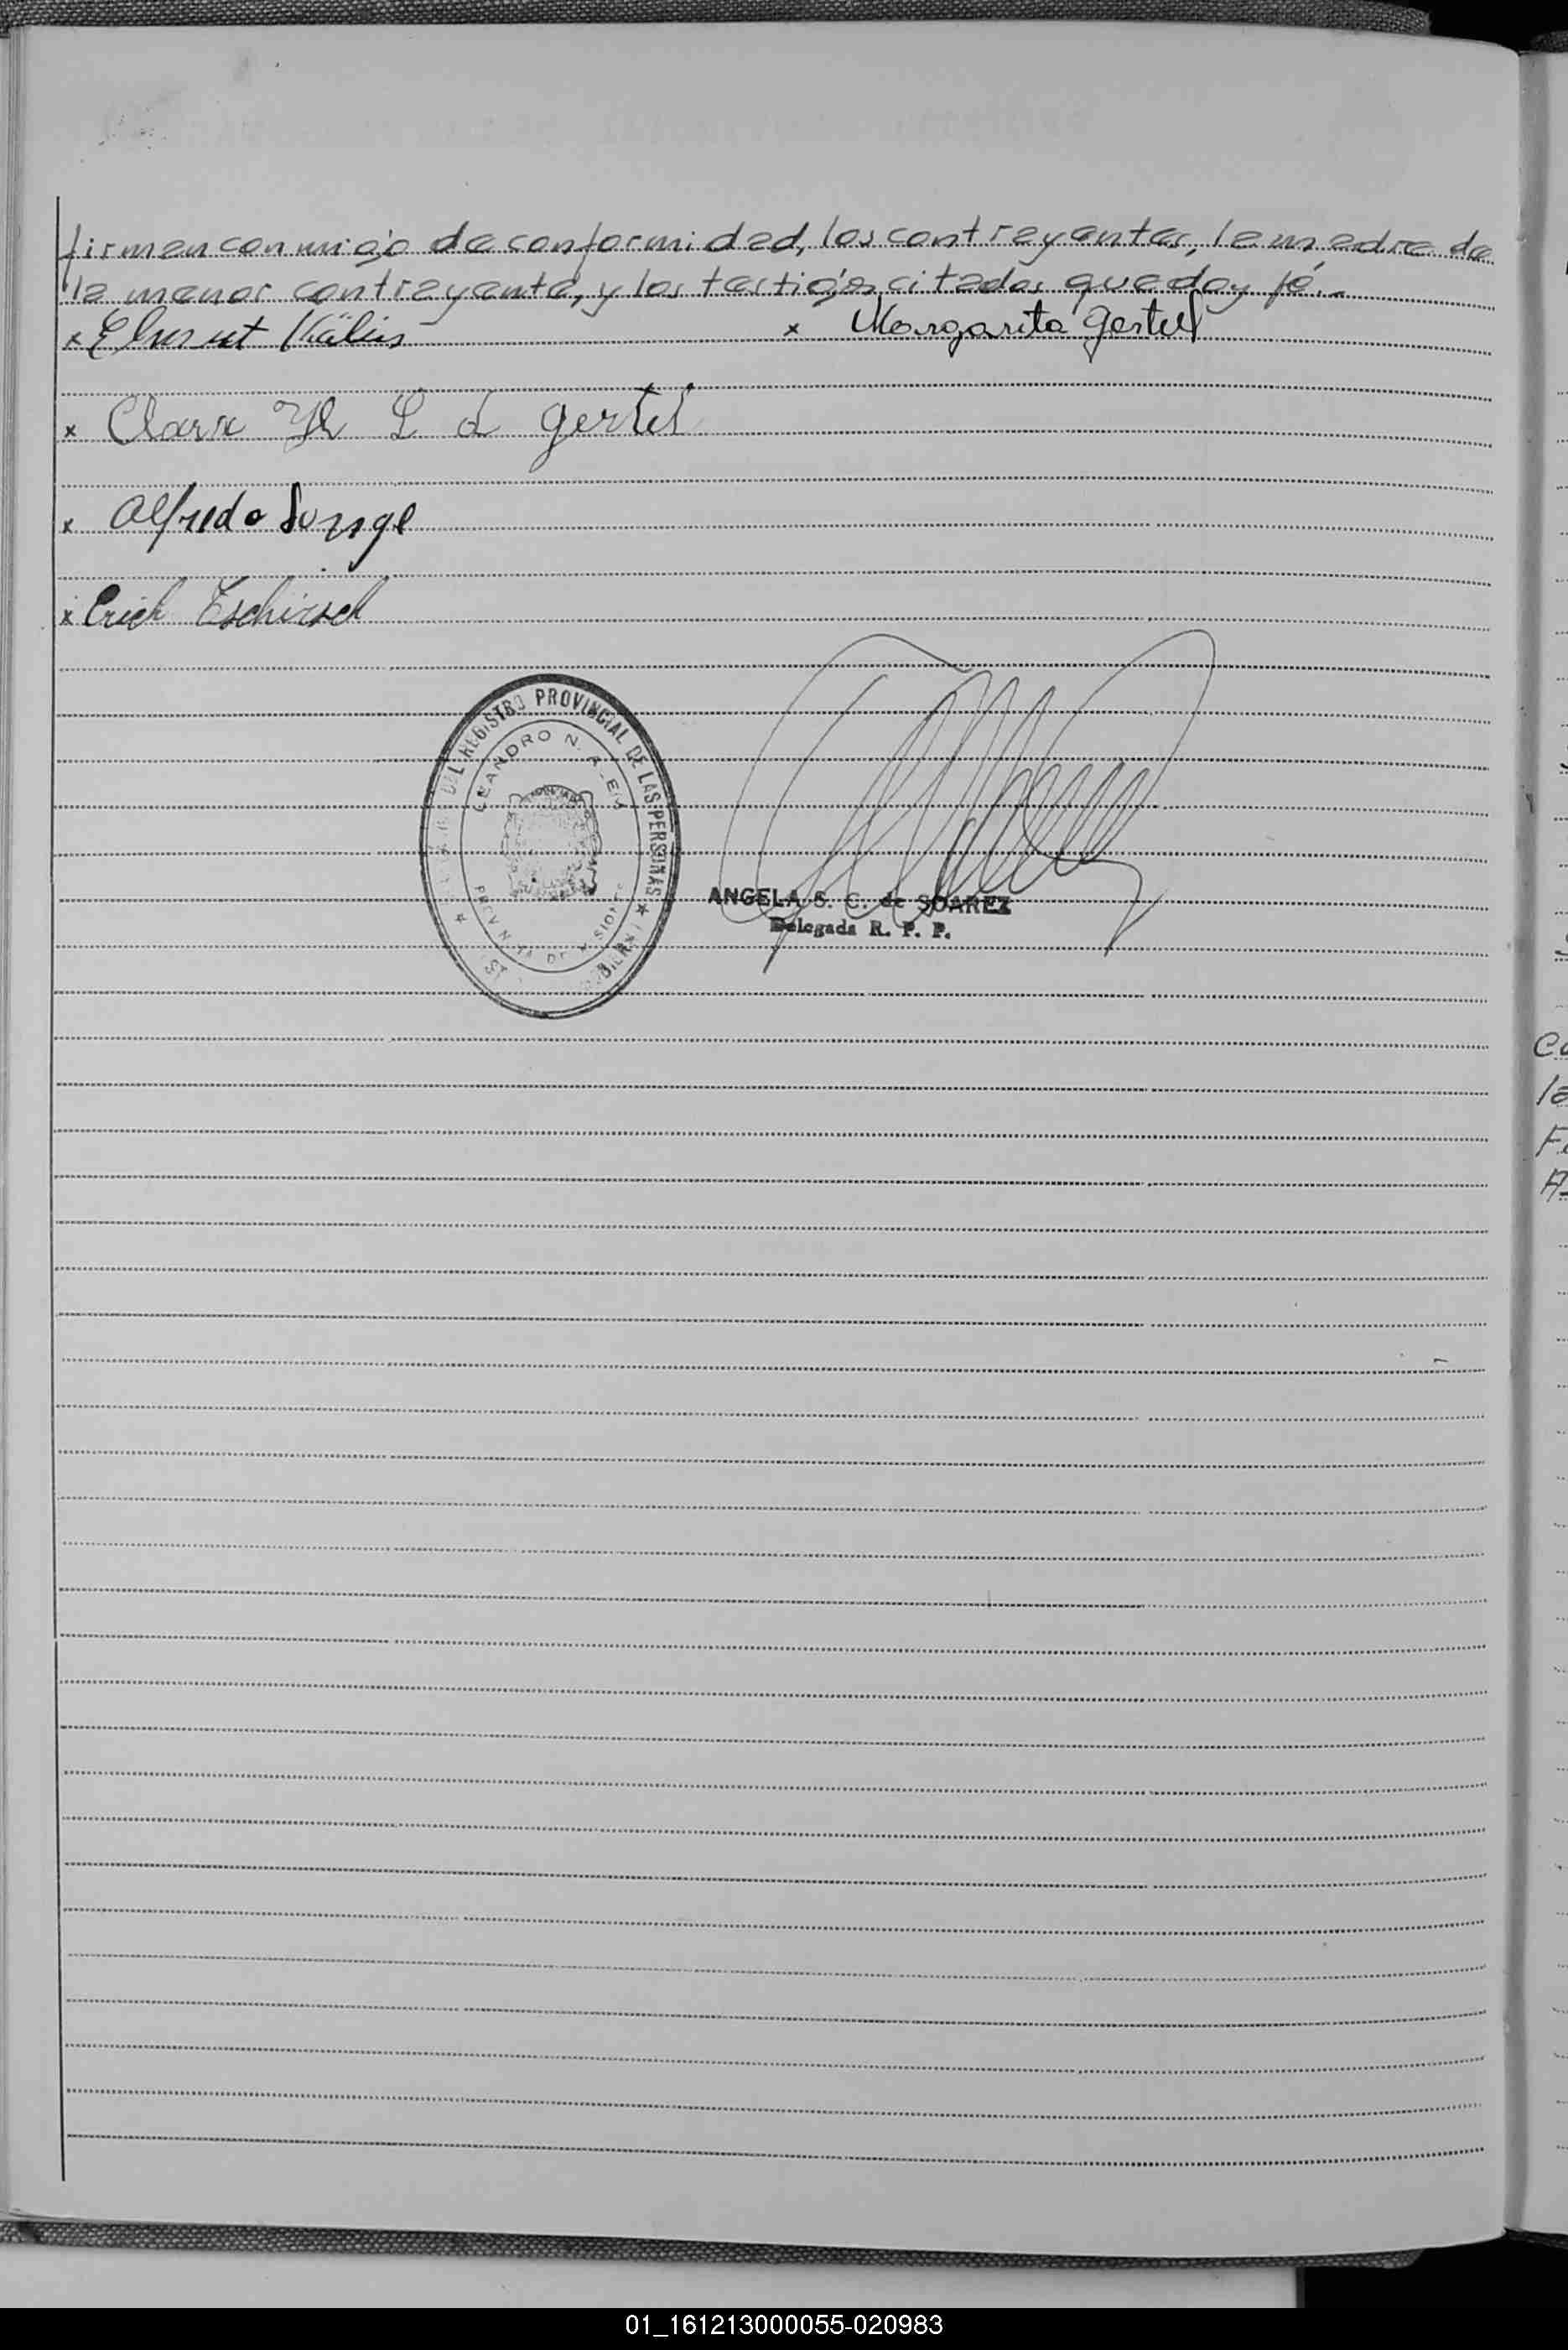 firman conmigo de conformidad, los contrayentes, la madre de
la menor contrayente, y los testigos citados que doy fé.-
x x Margarita Gertel
x Clara L d Gertel
x Alfredo Junge
x Erich Tschirsch
REGISTRO PROVINCIAL DE LAS PERSONAS
LEANDRO N. ALEM
PROVINCIA DE MISIONES
ANGELA S. C. de SOAREZ
Delegada R. P. P.
01_161213000055-020983